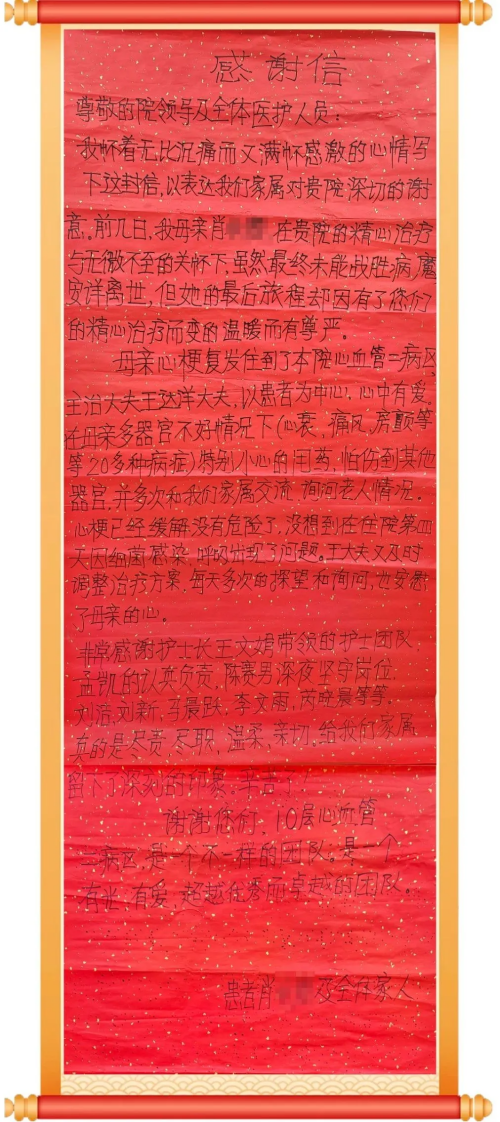 感谢信
尊敬的院领导及全体医护人员：
我怀着无比沉痛而又满怀感激的心情写
下这封信，以表达我们家属对贵院深切的谢
意。前几日，我母亲肖 在贵院的精心治疗
与无微不至的关怀下，虽然最终未能战胜病魔
安详离世，但她的最后旅程却因有了您们
的精心治疗而变的温暖而有尊严。
母亲心梗复发住到了本院心血管二病区
主治大夫王达洋大夫，以患者为中心，心中有爱。
在母亲多器官不好情况下（心衰、痛风、房颤等
等20多种病症）特别小心的用药，怕伤到其他
器官，并多次和我们家属交流 询问老人情况。
心梗已经缓解没有危险了，没想到住在院第四
天因细菌感染，呼吸出现了问题。王大夫又及时
调整治疗方案，每天多次的探望和询问，也安慰
了母亲的心。
非常感谢护士长王文娟带领的护士团队，
孟凯的认真负责，陈赛男深夜坚守岗位
刘洁，刘新，马晨跃，李文雨，芮晓晨等等，
真的是尽责，尽职，温柔，亲切，给我们家属
留下了深刻的印象。辛苦了！
谢谢您们，10层心血管
二病区，是一个不一样的团队。是一个
有光，有爱，超越优秀而卓越的团队。
患者肖 及全体家人